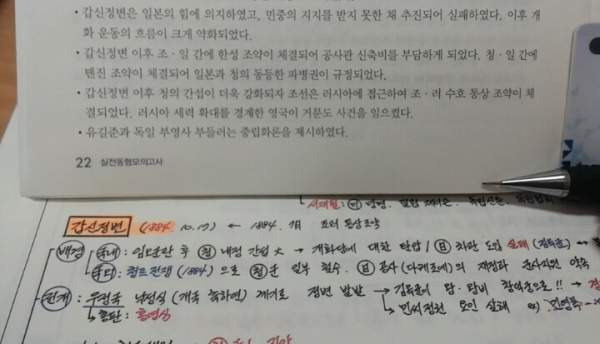 • 갑신정변은 일본의 힘에 의지하였고, 민중의 지지를 받지 못한 채 추진되어 실패하였다. 이후 개
화 운동의 흐름이 크게 약화되었다.
• 갑신정변 이후 조·일 간에 한성 조약이 체결되어 공사관 신축비를 부담하게 되었다. 청·일 간에
텐진 조약이 체결되어 일본과 청의 동등한 파병권이 규정되었다.
• 갑신정변 이후 청의 간섭이 더욱 강화되자 조선은 러시아에 접근하여 조·러 수호 통상 조약이 체
결되었다. 러시아 세력 확대를 경계한 영국이 거문도 사건을 일으켰다.
• 유길준과 독일 부영사 부들러는 중립화론을 제시하였다.
22 실전동형모의고사
서재필: 망명,
갑신정변 (1884. 10. 17) ← 1884. 조러 통상조약
배경 국내: 임오군란 후 청 내정 간섭 大 → 개화당에 대한 탄압 / 日 차관 도입 실패 (김옥균)
국외: 청프전쟁 (1884)으로 청군 일부 철수. 日 공사 (다케조에)의 재정과 군사지원 약속
전개: 우정국 낙성식 (개국 축하연) 계기로 정변 발발 → 김옥균이
→ 민씨정권 요인 살해
총판: 홍영식